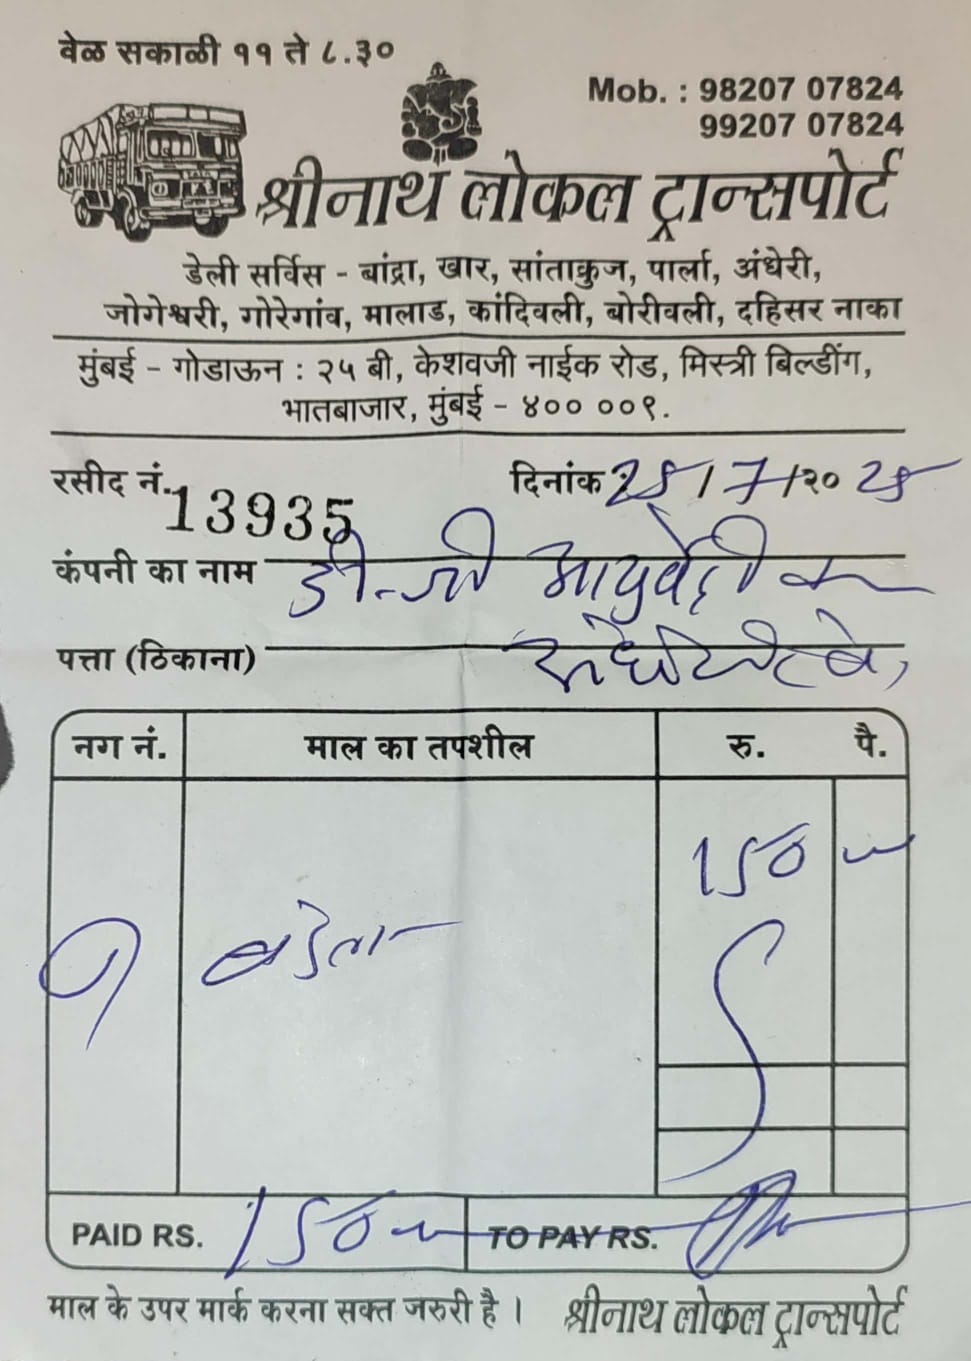 वेळ सकाळी ११ ते ८.३०
Mob. : 98207 07824
99207 07824
श्रीनाथ लोकल ट्रान्सपोर्ट
डेली सर्विस - बांद्रा, खार, सांताक्रुज, पार्ला, अंधेरी,
जोगेश्वरी, गोरेगांव, मालाड, कांदिवली, बोरीवली, दहिसर नाका
मुंबई - गोडाऊन : २५ बी, केशवजी नाईक रोड, मिस्त्री बिल्डींग,
भातबाजार, मुंबई - ४०० ००९.
रसीद नं. 13935 दिनांक : 25/7/२० 25
कंपनी का नाम डी-जी आयुर्वेदीक
पत्ता (ठिकाना)
नग नं. माल का तपशील रु. पै.
150
१
PAID RS. 150 TO PAY RS.
माल के उपर मार्क करना सक्त जरुरी है । श्रीनाथ लोकल ट्रान्सपोर्ट